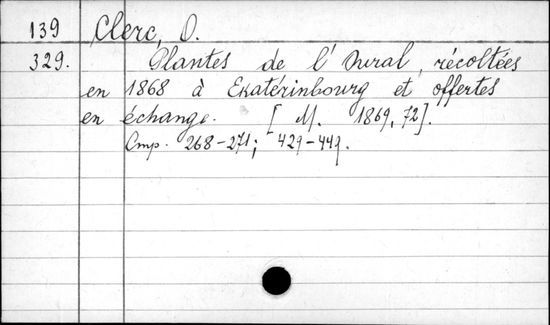 139 Clerc, O.
329. Plantes de l'Oural, récoltées
en 1868 à Ekatérinbourg et offertes
en échange. [M. 1869, 72].
Стр. 268-271; 429-449.